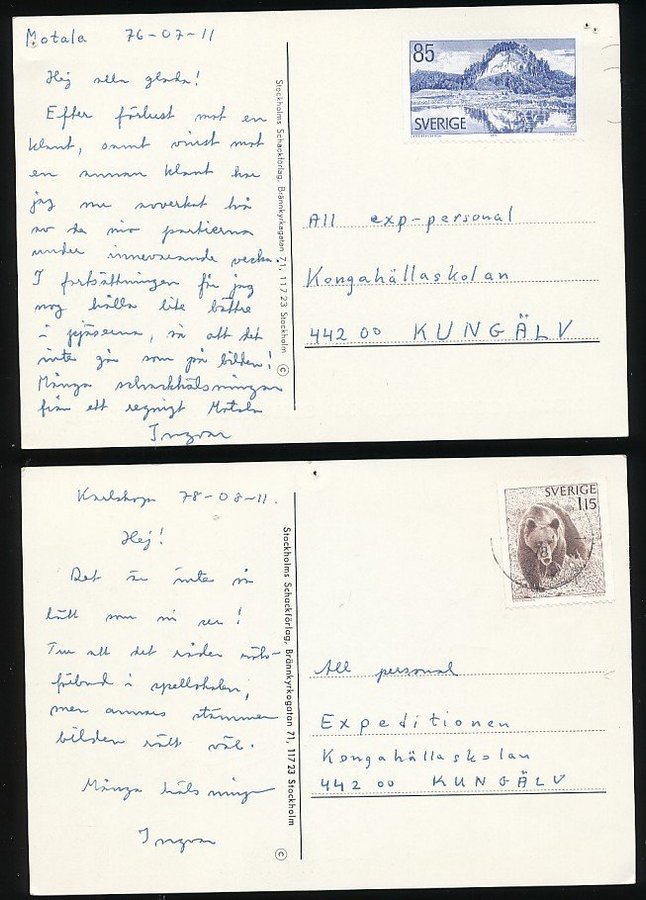 Motala 76-07-11
Hej alla glada!
Efter förlust mot en
klant, samt vinst mot
en annan klant har
jag nu avverkat två
av de nio partierna
under innevarande vecka.
I fortsättningen får jag
nog hålla lite bättre
i pjäserna, så att det
inte går som på bilden!
Många schackhälsningar
från ett regnigt Motala
Ingvar
Stockholms Schackförlag, Brännkyrkagatan 71, 117 23 Stockholm ©
85
SVERIGE
All exp-personal
Kongahällaskolan
442 00 KUNGÄLV
Karlskoga 78-08-11.
Hej!
Det är inte så
lätt som ni ser!
Tur att det råder rök-
förbud i spellokalen,
men annars stämmer
bilden rätt väl.
Många hälsningar
Ingvar
Stockholms Schackförlag, Brännkyrkogatan 71, 117 23 Stockholm ©
SVERIGE
1,15
All personal
Expeditionen
Kongahällaskolan
442 00 KUNGÄLV